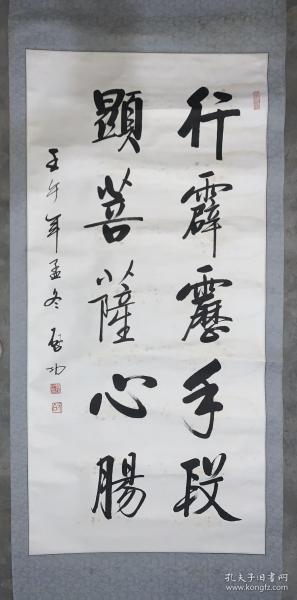 行霹靂手段
顯菩薩心腸
壬午年孟冬 啓功
孔夫子旧书网
www.kongfz.com